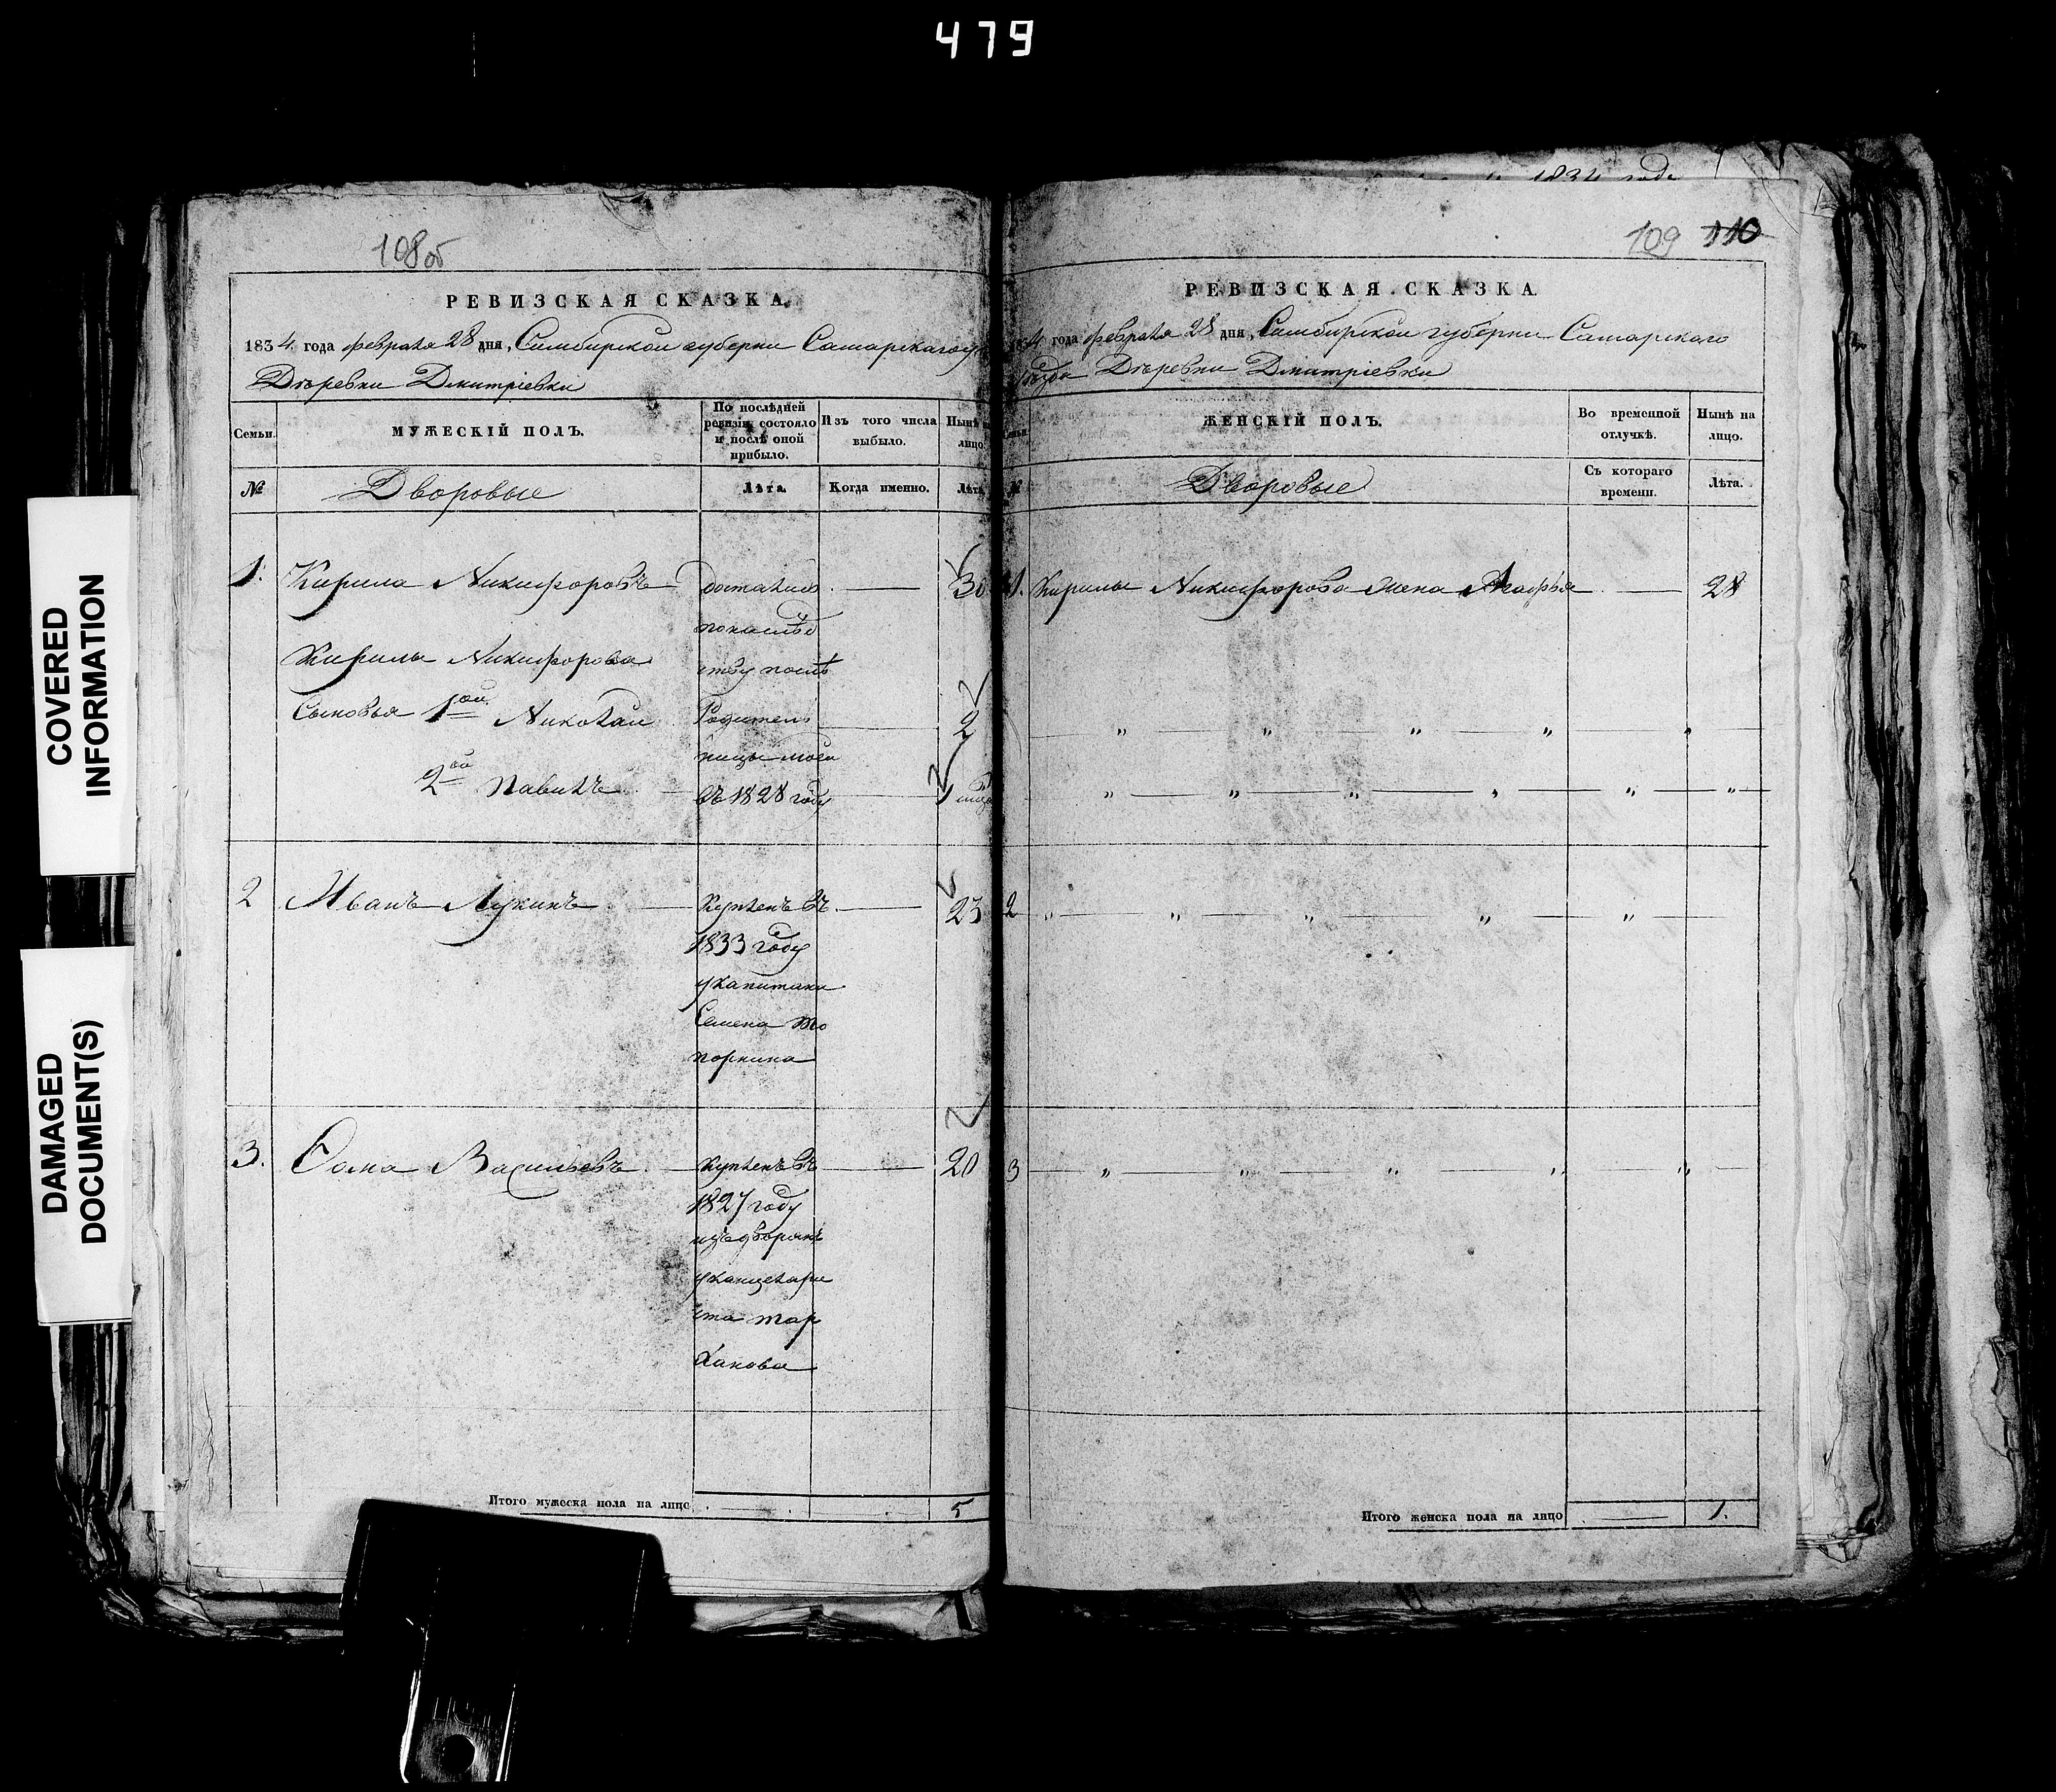 479
COVERED
INFORMATION
DAMAGED
DOCUMENT(S)
1834 года
108 об
РЕВИЗСКАЯ СКАЗКА,
1834 года февраля 28 дня, Симбирской губерни Самарскаго
Деревни Дмитріевки
Семьи.
МУЖЕСКІЙ ПОЛЪ.
По послѣдней ревизіи состояло и послѣ оной прибыло.
Изъ того числа выбыло.
Нынѣ на лицо.
№
Дворовые
Лѣта.
Когда именно.
Лѣта.
1. Кирила Никифоровъ достались 30
по наслѣд
Кирилы Никифорова ству послѣ
Сыновья 1ой Николай Родитель 2
ницы моей
2ой Павилъ въ 1828 году 1
2 Иванъ Лукинъ Купленъ въ 23
1833 году
у капитана
Семена То
порнина
3. Фома Васильевъ Купленъ въ 20
1827 году
изъ дворянъ
у канцеляри
ста Тар
ханова
Итого мужеска пола на лицо 5
109 110
РЕВИЗСКАЯ СКАЗКА
1834 года февраля 28 дня, Симбирской губерни Самарскаго
уѣзда Деревни Дмитріевки
Семьи.
ЖЕНСКІЙ ПОЛЪ.
Во временной отлучкѣ.
Нынѣ на лицо.
№
Дворовые
Съ котораго времени.
Лѣта.
1. Кирилы Никифорова жена Агафья 28
" " " " "
" " " " " "
2 " " " " "
3 " " " " "
Итого женска пола на лицо 1.